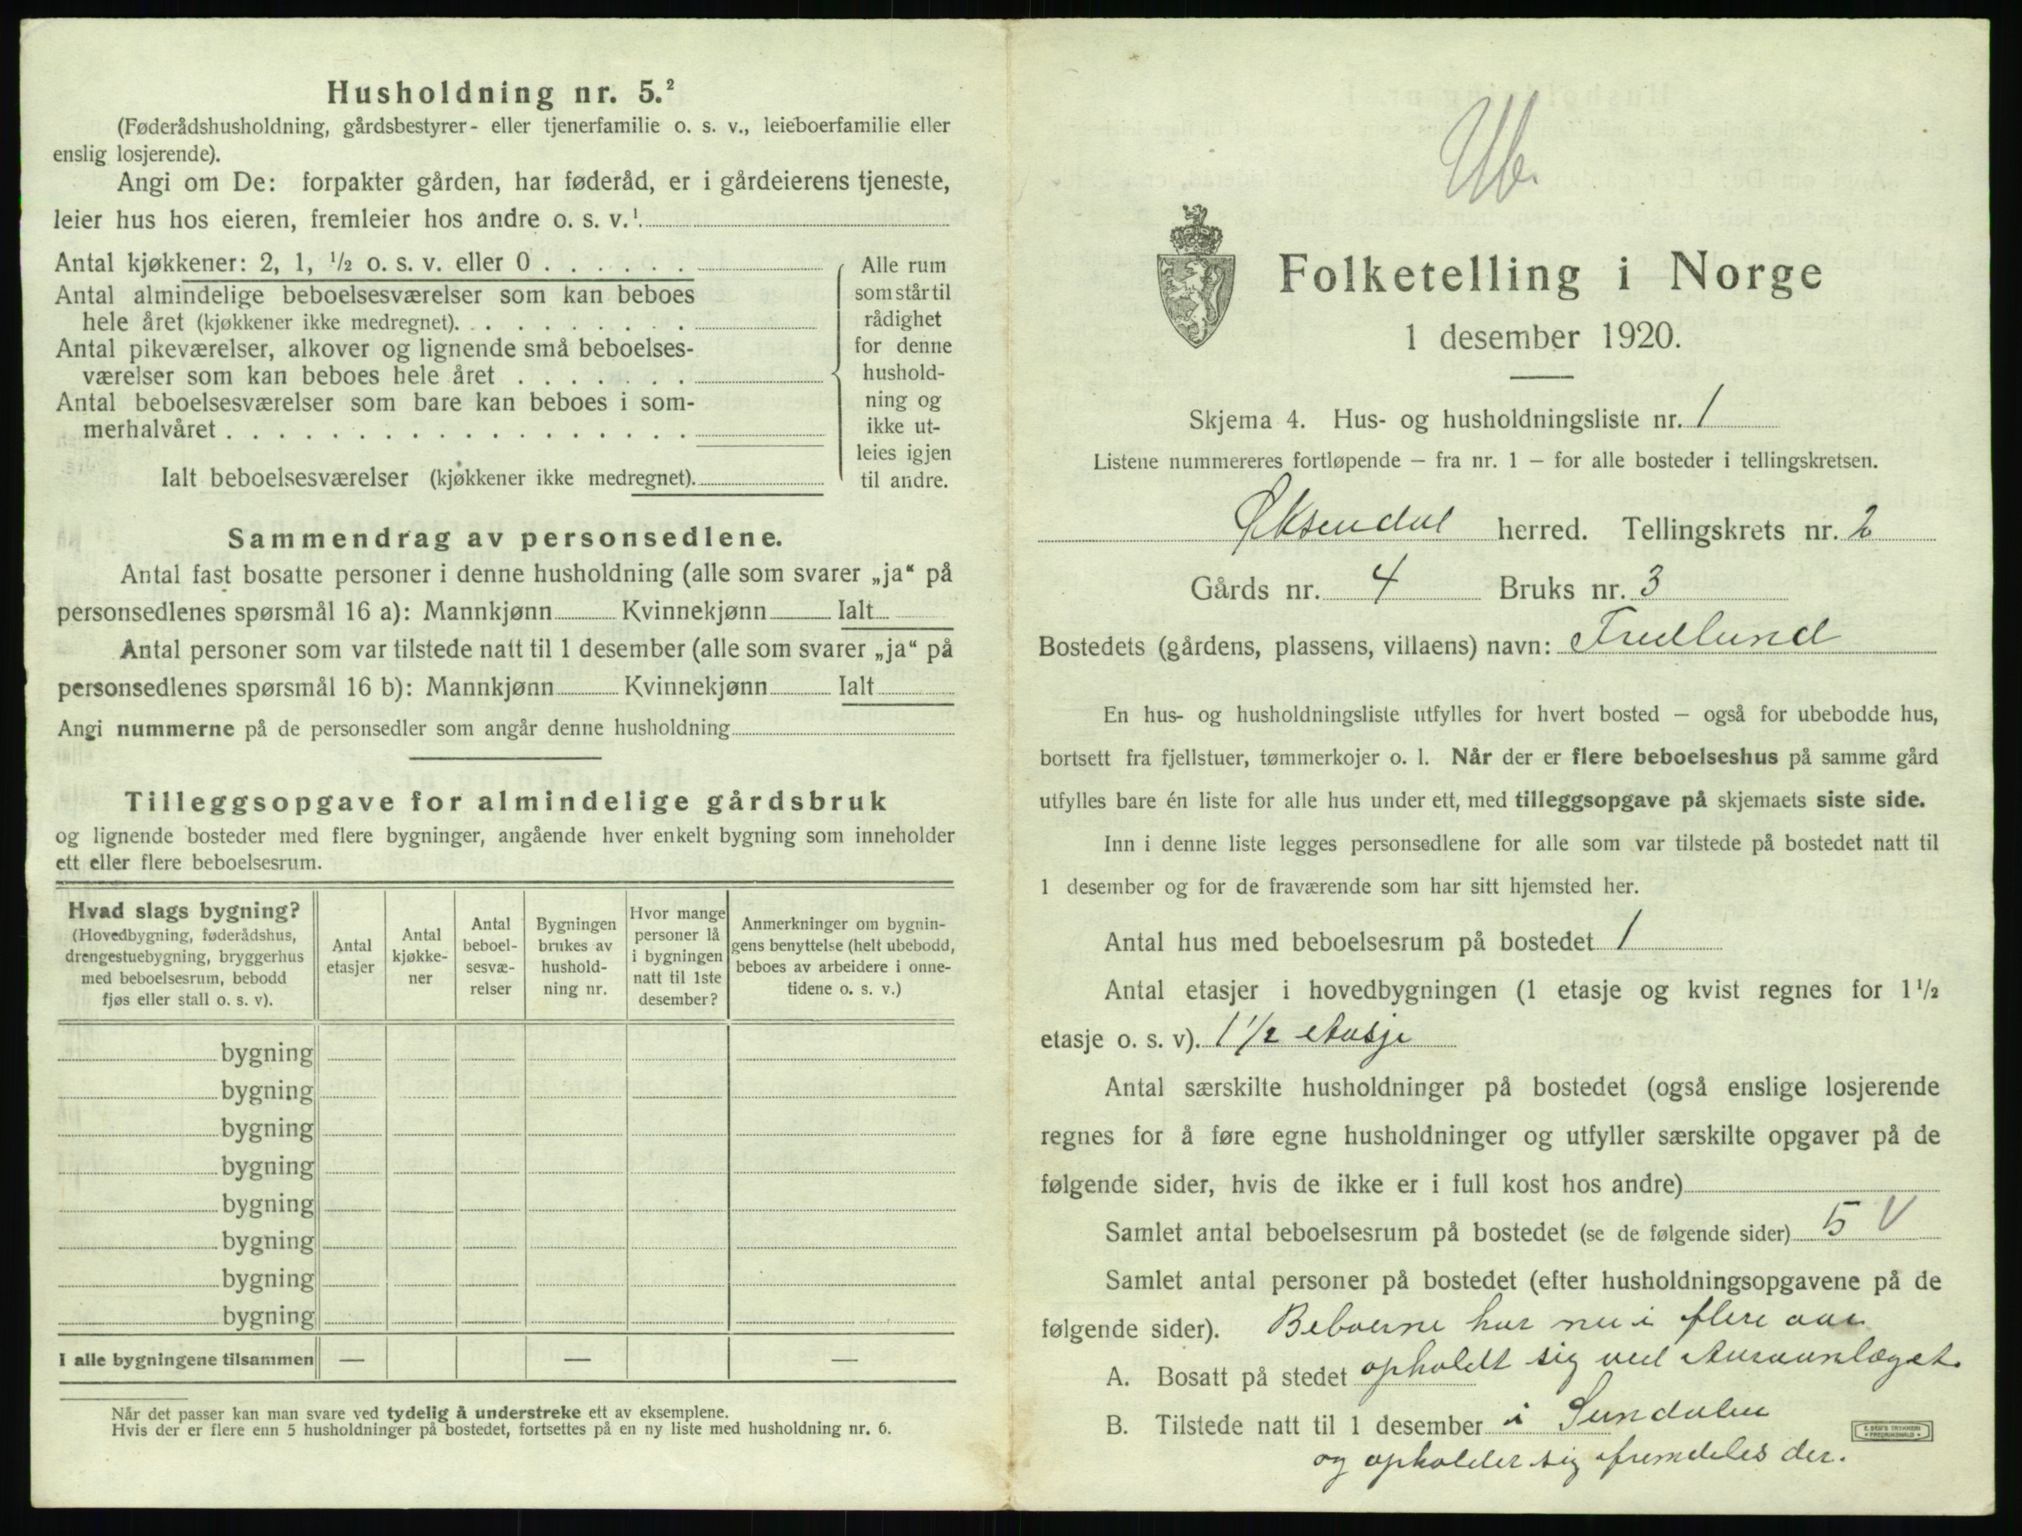 Husholdning nr. 5.²
(Føderådshusholdning, gårdsbestyrer- eller tjenerfamilie o. s. v., leieboerfamilie eller
enslig losjerende).
Angi om De: forpakter gården, har føderåd, er i gårdeierens tjeneste,
leier hus hos eieren, fremleier hos andre o. s. v.¹
Antal kjøkkener: 2, 1, ½ o. s. v. eller 0 . . . . . .
Antal almindelige beboelsesværelser som kan beboes
hele året (kjøkkener ikke medregnet). . . . . . . . .
Antal pikeværelser, alkover og lignende små beboelses-
værelser som kan beboes hele året . . . . . . .
Antal beboelsesværelser som bare kan beboes i som-
merhalvåret . . . . . . . . . . . . . . . . . .
Ialt beboelsesværelser (kjøkkener ikke medregnet).
Alle rum
som står til
rådighet
for denne
hushold-
ning og
ikke ut-
leies igjen
til andre.
Sammendrag av personsedlene.
Antal fast bosatte personer i denne husholdning (alle som svarer „ja“ på
personsedlenes spørsmål 16 a): Mannkjønn Kvinnekjønn Ialt
Antal personer som var tilstede natt til 1 desember (alle som svarer „ja“ på
personsedlenes spørsmål 16 b): Mannkjønn Kvinnekjønn Ialt
Angi nummerne på de personsedler som angår denne husholdning
Tilleggsopgave for almindelige gårdsbruk
og lignende bosteder med flere bygninger, angående hver enkelt bygning som inneholder
ett eller flere beboelsesrum.
Hvad slags bygning?
(Hovedbygning, føderådshus,
drengestuebygning, bryggerhus
med beboelsesrum, bebodd
fjøs eller stall o. s. v).
Antal
etasjer
Antal
kjøkke-
ner
Antal
beboel-
sesvæ-
relser
Bygningen
brukes av
hushold-
ning nr.
Hvor mange
personer lå
i bygningen
natt til 1ste
desember?
Anmerkninger om bygnin-
gens benyttelse (helt ubebodd,
beboes av arbeidere i onne-
tidene o. s. v.)
bygning
bygning
bygning
bygning
bygning
bygning
bygning
bygning
I alle bygningene tilsammen — — —
Når det passer kan man svare ved tydelig å understreke ett av eksemplene.
Hvis der er flere enn 5 husholdninger på bostedet, fortsettes på en ny liste med husholdning nr. 6.
Ub.
Folketelling i Norge
1 desember 1920.
Skjema 4. Hus- og husholdningsliste nr. 1
Listene nummereres fortløpende – fra nr. 1 – for alle bosteder i tellingskretsen.
Øksendal herred. Tellingskrets nr. 2
Gårds nr. 4 Bruks nr. 3
Bostedets (gårdens, plassens, villaens) navn: Fredlund
En hus- og husholdningsliste utfylles for hvert bosted – også for ubebodde hus,
bortsett fra fjellstuer, tømmerkojer o. l. Når der er flere beboelseshus på samme gård
utfylles bare én liste for alle hus under ett, med tilleggsopgave på skjemaets siste side.
Inn i denne liste legges personsedlene for alle som var tilstede på bostedet natt til
1 desember og for de fraværende som har sitt hjemsted her.
Antal hus med beboelsesrum på bostedet 1
Antal etasjer i hovedbygningen (1 etasje og kvist regnes for 1½
etasje o. s. v). 1½ etasje
Antal særskilte husholdninger på bostedet (også enslige losjerende
regnes for å føre egne husholdninger og utfyller særskilte opgaver på de
følgende sider, hvis de ikke er i full kost hos andre)
Samlet antal beboelsesrum på bostedet (se de følgende sider) 5 V
Samlet antal personer på bostedet (efter husholdningsopgavene på de
følgende sider). Beboerne har nu i flere aar
A. Bosatt på stedet opholdt sig ved Auraanlæget
B. Tilstede natt til 1 desember i Sundalen
og opholder sig fremdeles der.